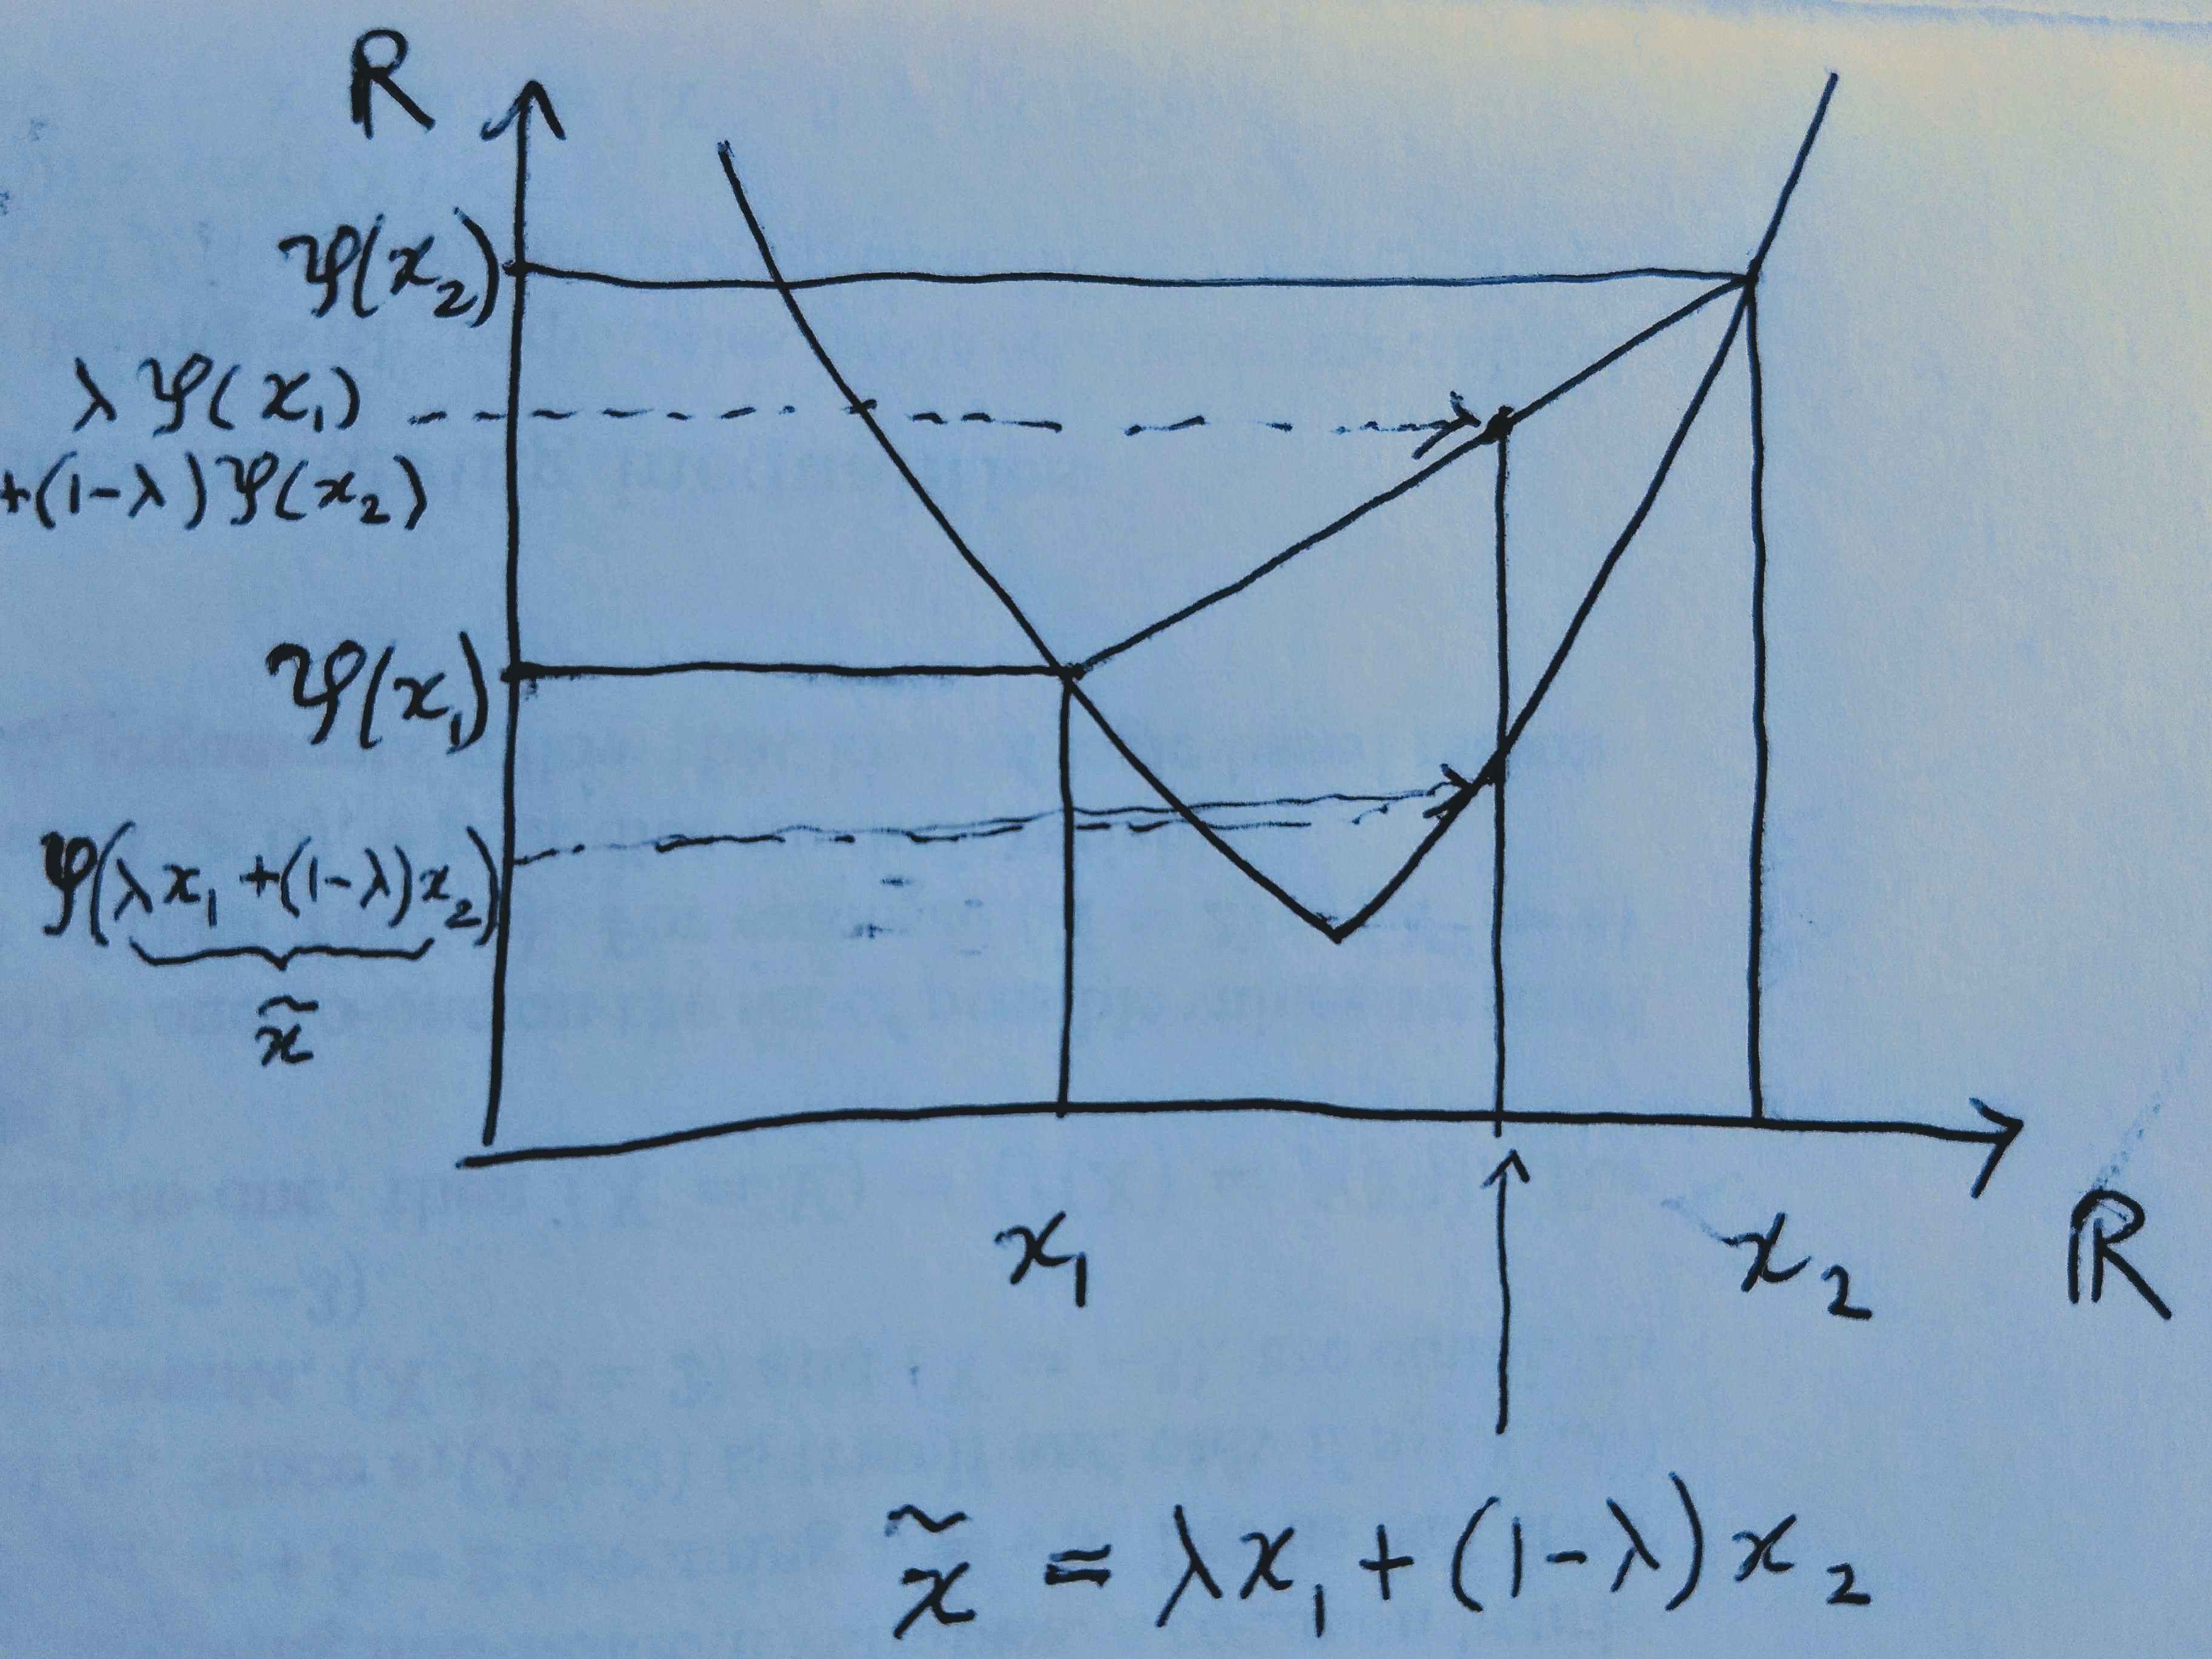 R
φ(x₂)
λ φ(x₁)
+(1-λ) φ(x₂)
φ(x₁)
φ(λx₁ +(1-λ)x₂)
x̃
x₁
x₂
ℝ
x̃ = λx₁ + (1-λ)x₂